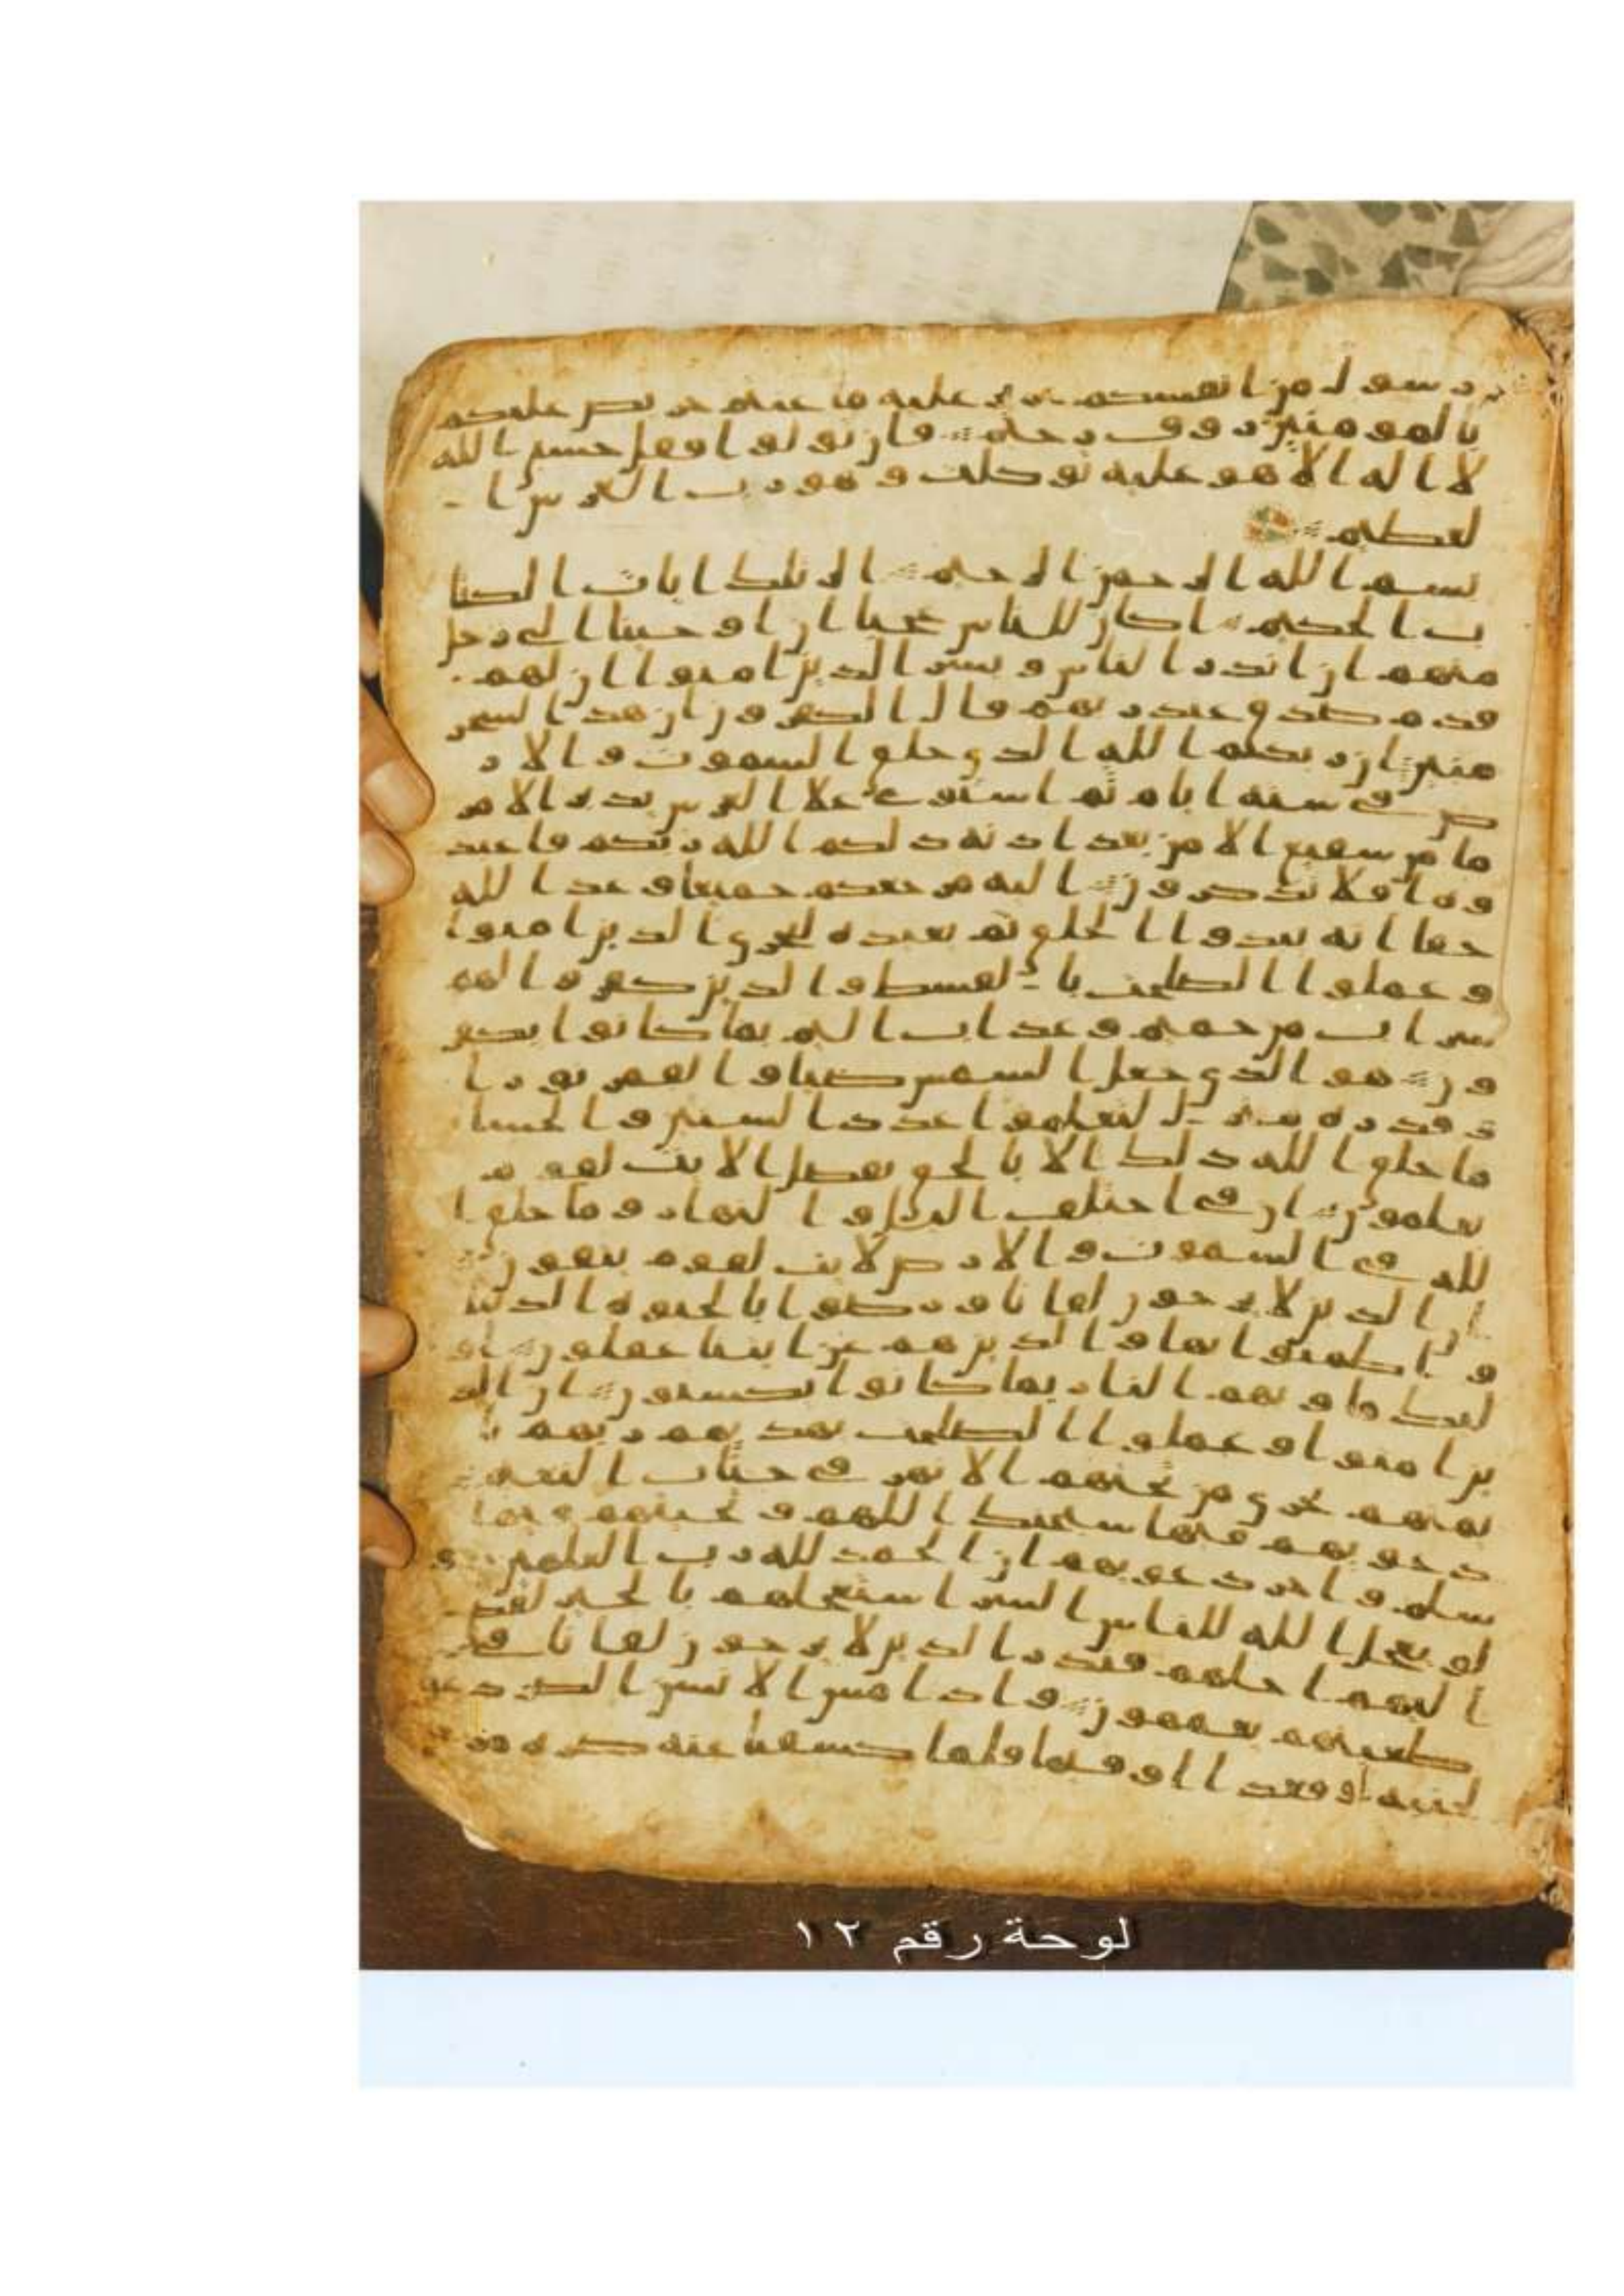 رسول من انفسكم عزيز عليه ما عنتم حريص عليكم
بالمومنين روف رحيم فان تولوا فقل حسبي الله
لا اله الا هو عليه توكلت وهو رب العرش ا
لعظيم
بسم الله الرحمن الرحيم الر تلك ايات الكتا
ب الحكيم اكان للناس عجبا ان اوحينا الى رجل
منهم ان انذر الناس وبشر الذين امنوا ان لهم
قدم صدق عند ربهم قال الكفرون ان هذا لسحر
مبين ان ربكم الله الذي خلق السموت والار
ض في ستة ايام ثم استوى علا العرش يدبر الامر
ما من شفيع الا من بعد اذنه ذلكم الله ربكم فاعبد
وه افلا تذكرون اليه مرجعكم جميعا وعد الله
حقا انه يبدوا الخلق ثم يعيده ليجزي الذين امنوا
وعملوا الصلحت بالقسط والذين كفروا لهم
شراب من حميم وعذاب اليم بما كانوا يكفر
ون هو الذي جعل الشمس ضيا والقمر نورا
وقدره منزل لتعلموا عدد السنين والحسا
ما خلق الله ذلك الا بالحق يفصل الايت لقوم
يعلمون ان في اختلف اليل والنهار وما خلق ا
لله في السموت والارض لايت لقوم يتقون
ان الذين لا يرجون لقانا ورضوا بالحيوة الدنيا
واطمنوا بها والذين هم عن ايتنا غفلون او
لئك ماويهم النار بما كانوا يكسبون ان الذ
ين امنوا وعملوا الصلحت يهديهم ربهم با
يمنهم تجري من تحتهم الانهر في جنات النعيم
دعويهم فيها سبحنك اللهم وتحيتهم فيها
سلم واخر دعويهم ان الحمد لله رب العلمين و
لو يعجل الله للناس الشر استعجلهم بالخير لقض
اليهم اجلهم فنذر الذين لا يرجون لقانا في
طغينهم يعمهون واذا مس الانسن الضر دعا
لجنبه او قعدا او قيما فلما كشفنا عنه ضره مر
لوحة رقم ١٢